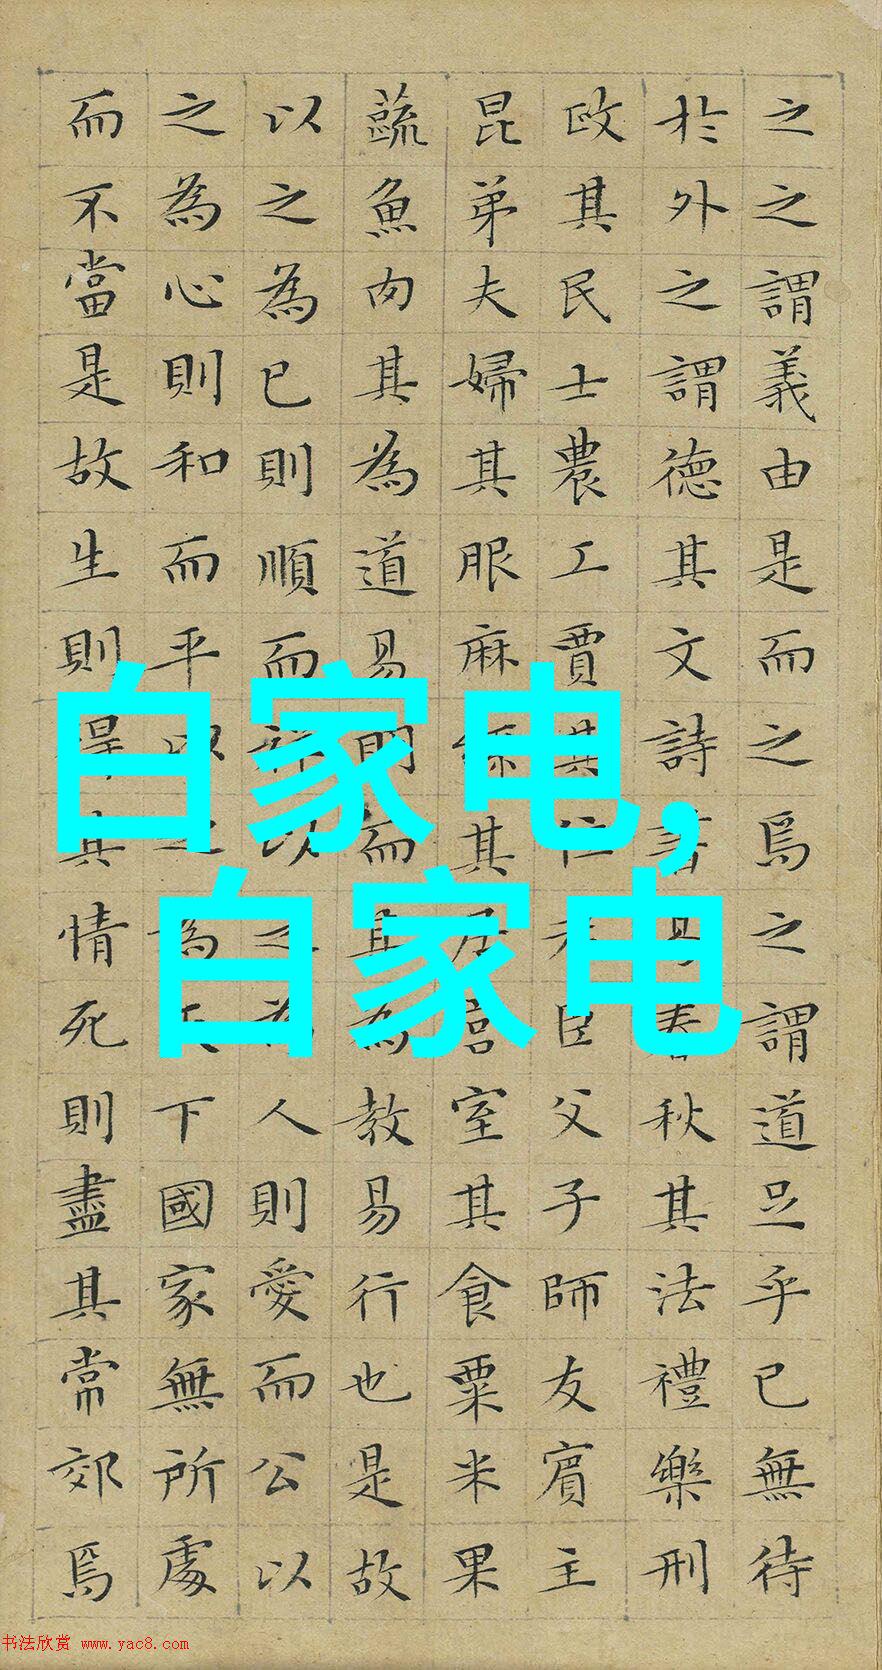 之之謂義由是而之焉之謂道足乎已無待
於外之謂德其文詩書易春秋其法禮樂刑
政其民士農工賈其位君臣父子師友賓主
昆弟夫婦其服麻絲其居宮室其食粟米果
蔬魚肉其為道易明而其為教易行也是故
以之為已則順而祥以之為人則愛而公以
之為心則和而平以之為天下國家無所處
而不當是故生則得其情死則盡其常郊焉
白家电,
白家电
书法欣赏 www.yac8.com